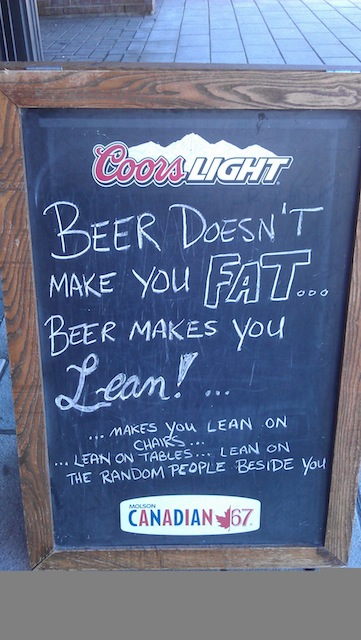 Coors LIGHT
BEER DOESN'T
MAKE YOU FAT...
BEER MAKES YOU
Lean! ...
... MAKES YOU LEAN ON
CHAIRS ...
... LEAN ON TABLES... LEAN ON
THE RANDOM PEOPLE BESIDE YOU
MOLSON
CANADIAN 67